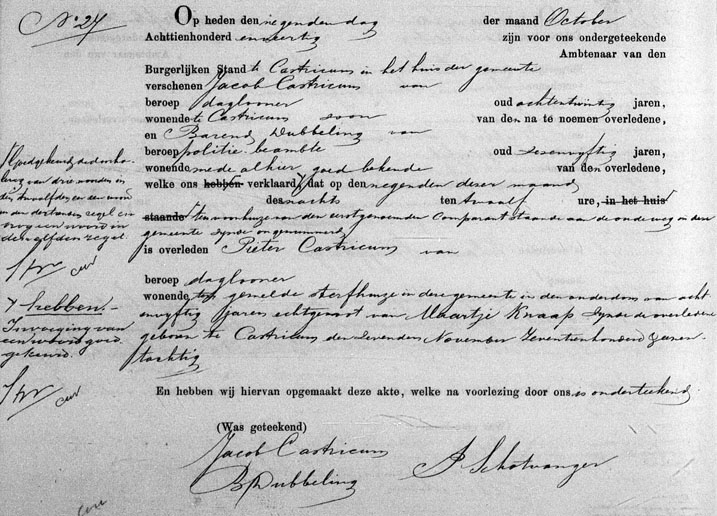 No 27
Op heden den negenden dag der maand October
Achttienhonderd en veertig zijn voor ons ondergeteekende
Ambtenaar van den
Burgerlijken Stand te Castricum in het huis der gemeente
verschenen Jacob Castricum van
beroep daglooner oud achtentwintig jaren,
wonende te Castricum zoon van den na te noemen overledene,
en Barend Dubbeling van
beroep politie beambte oud jaren,
wonende mede alhier goed bekende van den overledene,
welke ons hebben verklaard, dat op den negenden dezer maand
des nachts ten twaalf ure, in het huis
staande ten voorhuize van den eerstgenoemden Comparant staande aan de onderweg in deze
gemeente zijnde ongenummerd
is overleden Pieter Castricum van
beroep daglooner
wonende ten gemelde sterfhuize in deze gemeente in den ouderdom van acht
envijftig jaren echtgenoot van Maartje Knaap zijnde de overledene
geboren te Castricum den zevenden November Zeventienhonderd
tachtig
En hebben wij hiervan opgemaakt deze akte, welke na voorlezing door ons is onderteekend.
(Was geteekend)
Jacob Castricum
B Dubbeling
P Schotvanger
Goedgekeurd de doorha-
ling van drie woorden in
den twaalfden en een woord
in den dertienden regel en
nog een woord in
den elfden regel
hebben.-
Invoeging van
een woord goed
gekeurd.